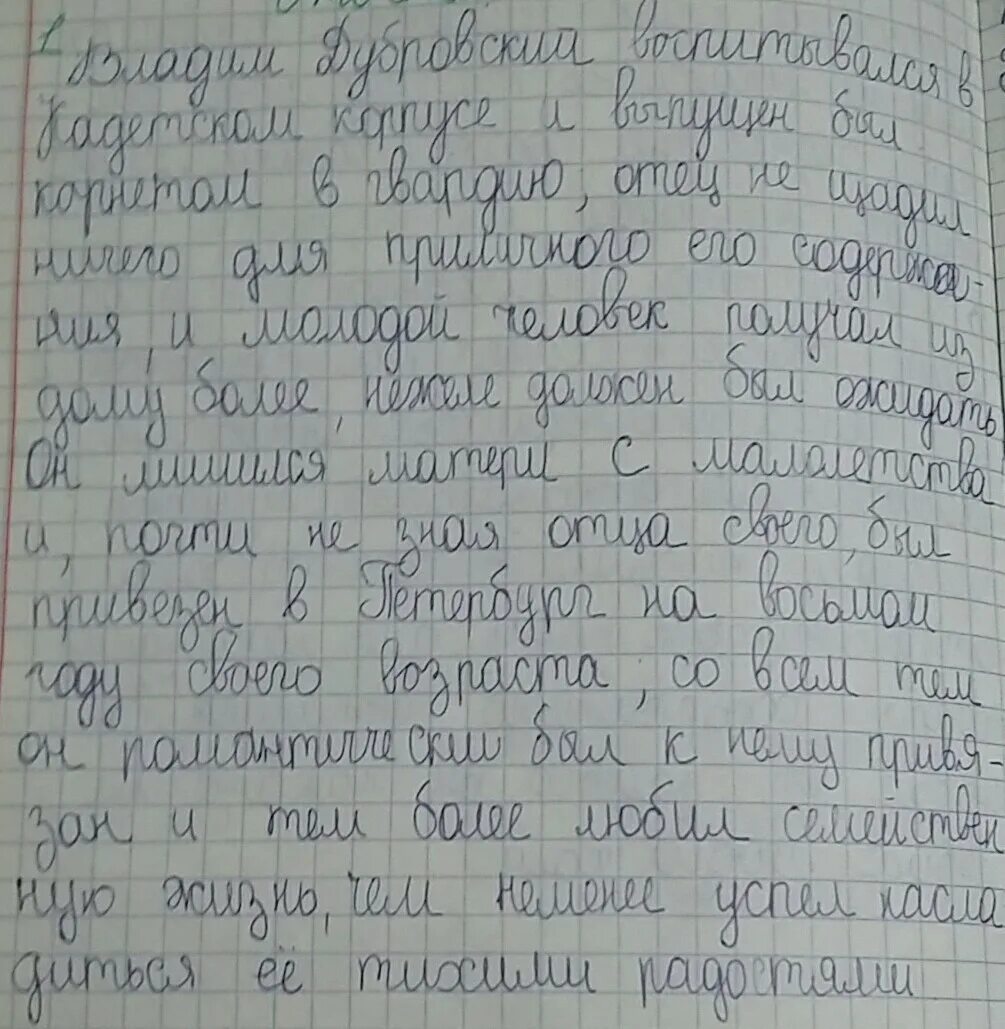 1
Владим Дубровский воспитывался в
Кадетском корпусе и выпущен был
корнетом в гвардию, отец не щадил
ничего для приличного его содержа-
ния, и молодой человек получал из
дому более, нежеле должен был ожидать
Он лишился матери с малалетства
и, почти не зная отца своего, был
привезен в Петербург на восьмом
году своего возраста, со всем тем
он романтически был к нему привя-
зан и тем более любил семействен
ную жизнь, чем неменее успел насла
диться её тихими радостями